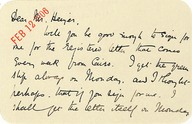 Dear Mr. Heuser,
FEB 12 1908
Will you be good enough to sign for
me for the Registered letter that comes
every week from Cairo. I get the green
slip always on Monday, and I thought
perhaps, that if you sign for me, I
shall get the letter itself on Monday